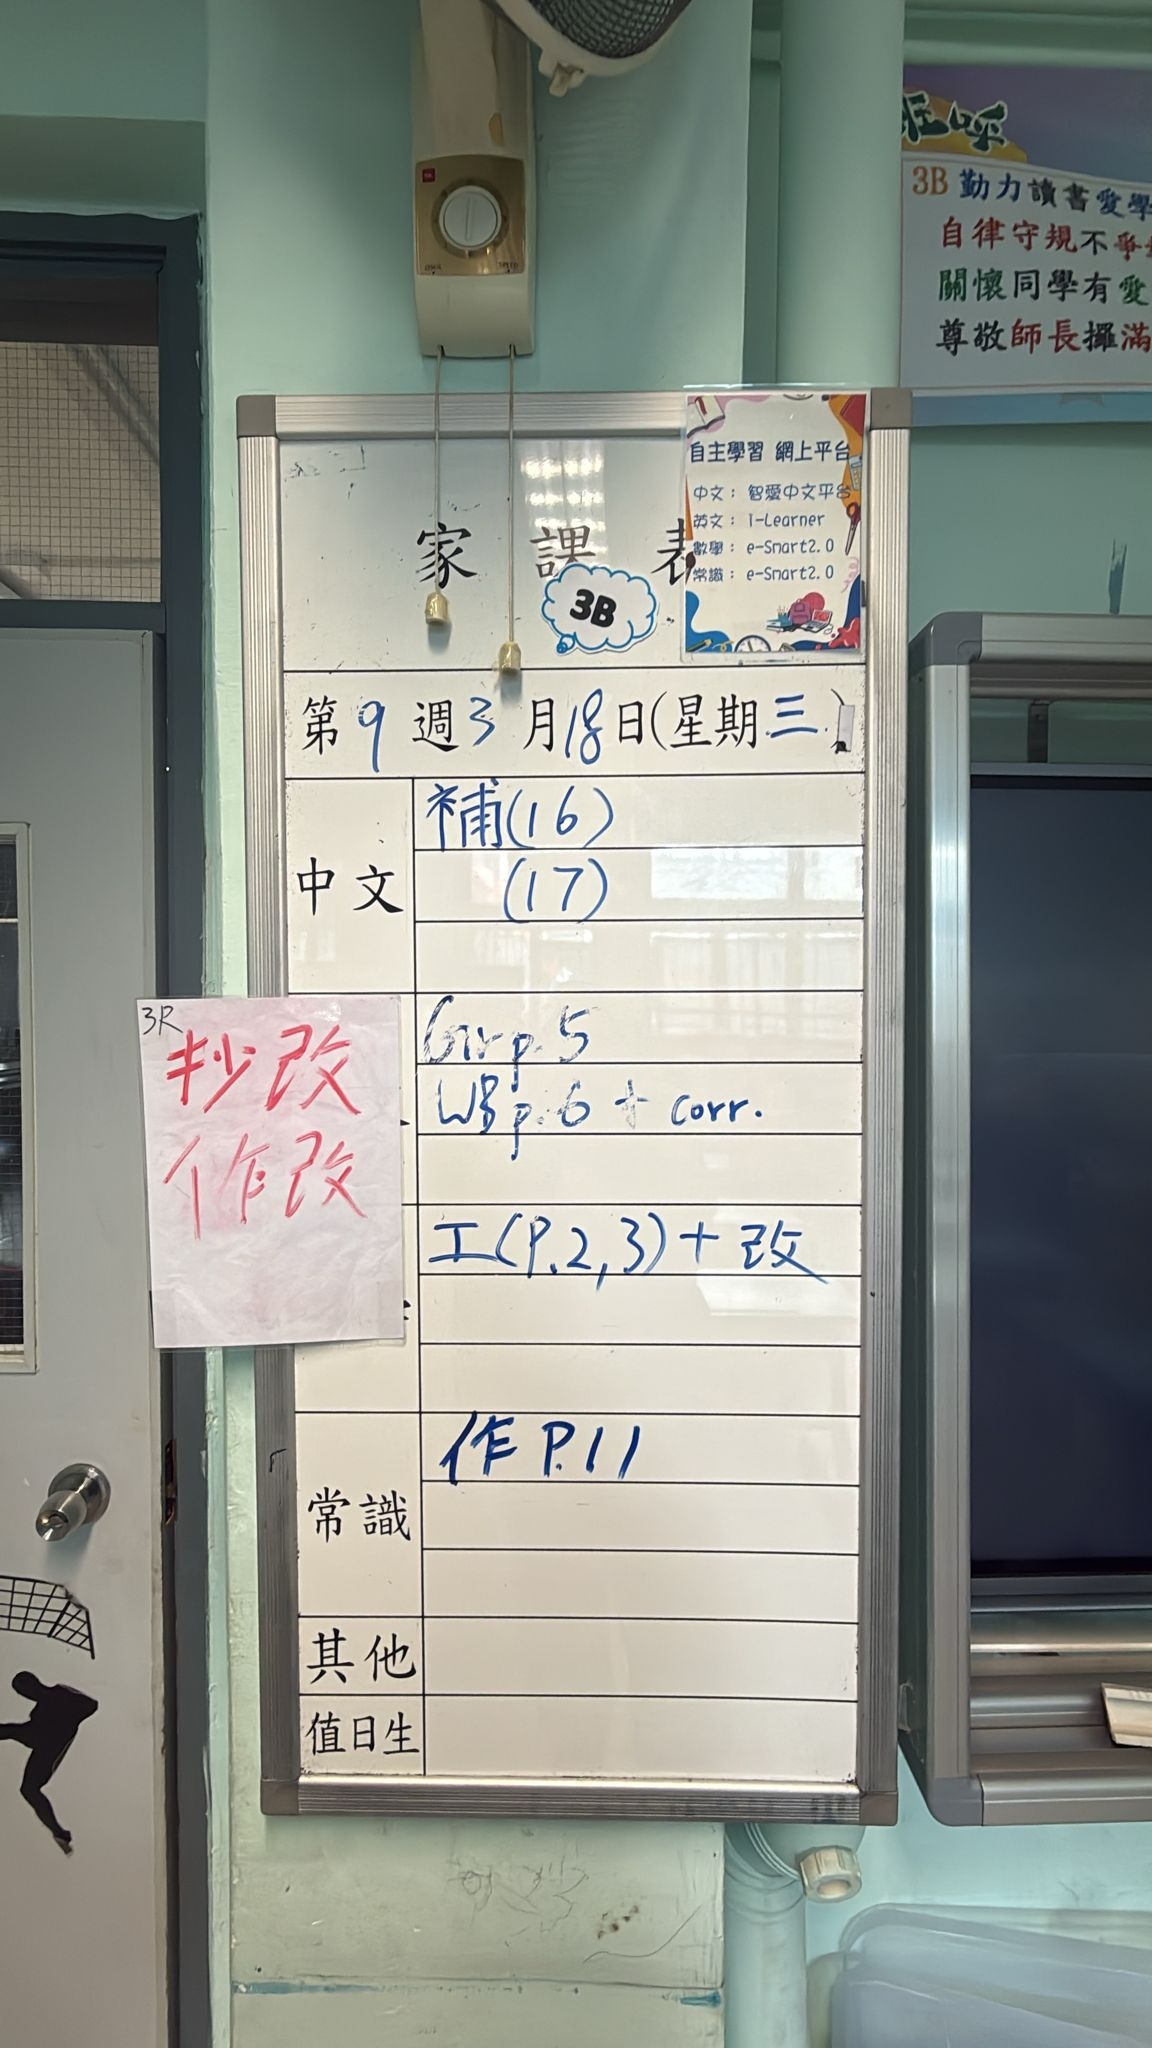 狂呼
3B 勤力讀書愛學
自律守規不爭
關懷同學有愛
尊敬師長攞滿
自主學習 網上平台
中文：智愛中文平台
英文：i-Learner
數學：e-Smart2.0
常識：e-Smart2.0
家課表
3B
第9週3月18日(星期三)
中文
補(16)
(17)
3R
抄改
作改
Gr p.5
WB p.6 + corr.
工(P.2,3)+改
常識
作 P.11
其他
值日生